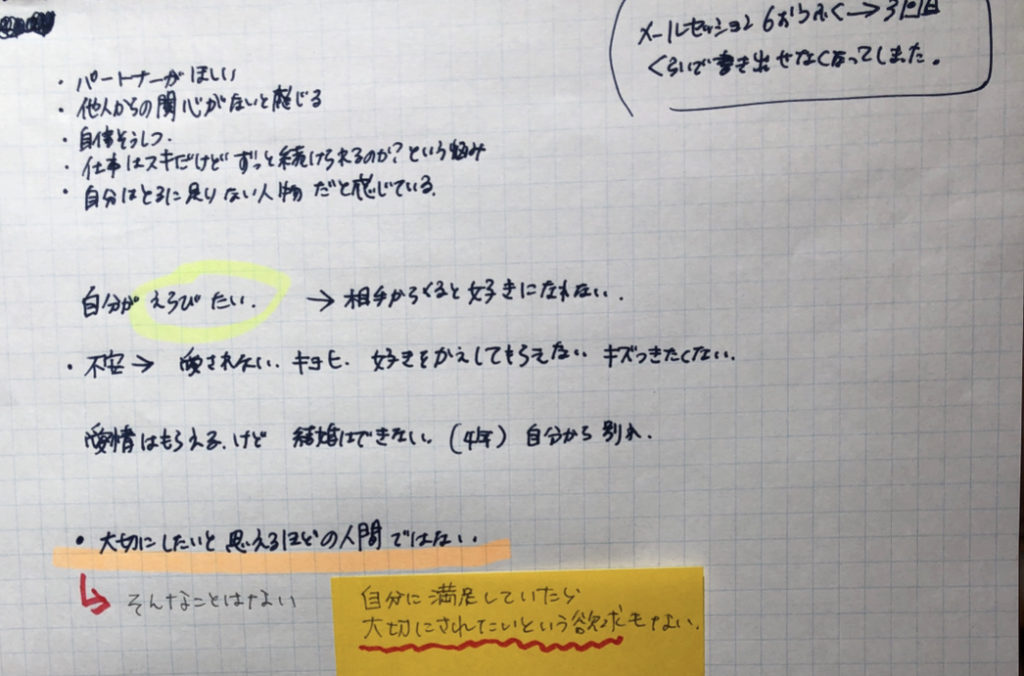 メールセッション 6おうふく→3回目
くらいで書き出せなくなってしました。
・パートナーがほしい
・他人からの関心がないと感じる
・自信そうしつ.
・仕事はスキだけど ずっと続けられるのか?という悩み
・自分はとるに足りない人物だと感じている.
自分が えらびたい. → 相手からくると好きになれない.
・不安→ 愛されない. キョヒ. 好きをかえしてもらえない キズつきたくない.
愛情はもらえる.けど 結婚はできない. (4年) 自分から別れ.
・大切にしたいと思えるほどの人間ではない.
そんなことはない
自分に満足していたら
大切にされたいという欲求もない.